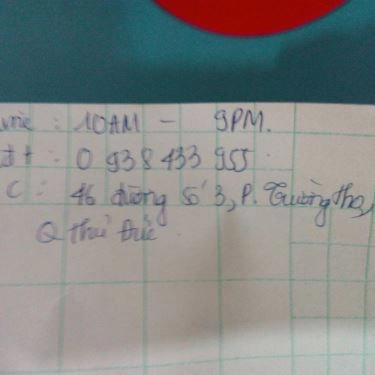 ime : 10AM - 9PM.
đt : 0 938 433 955.
C : 46 đường số 3, P. Trường thọ,
Q Thủ Đức.